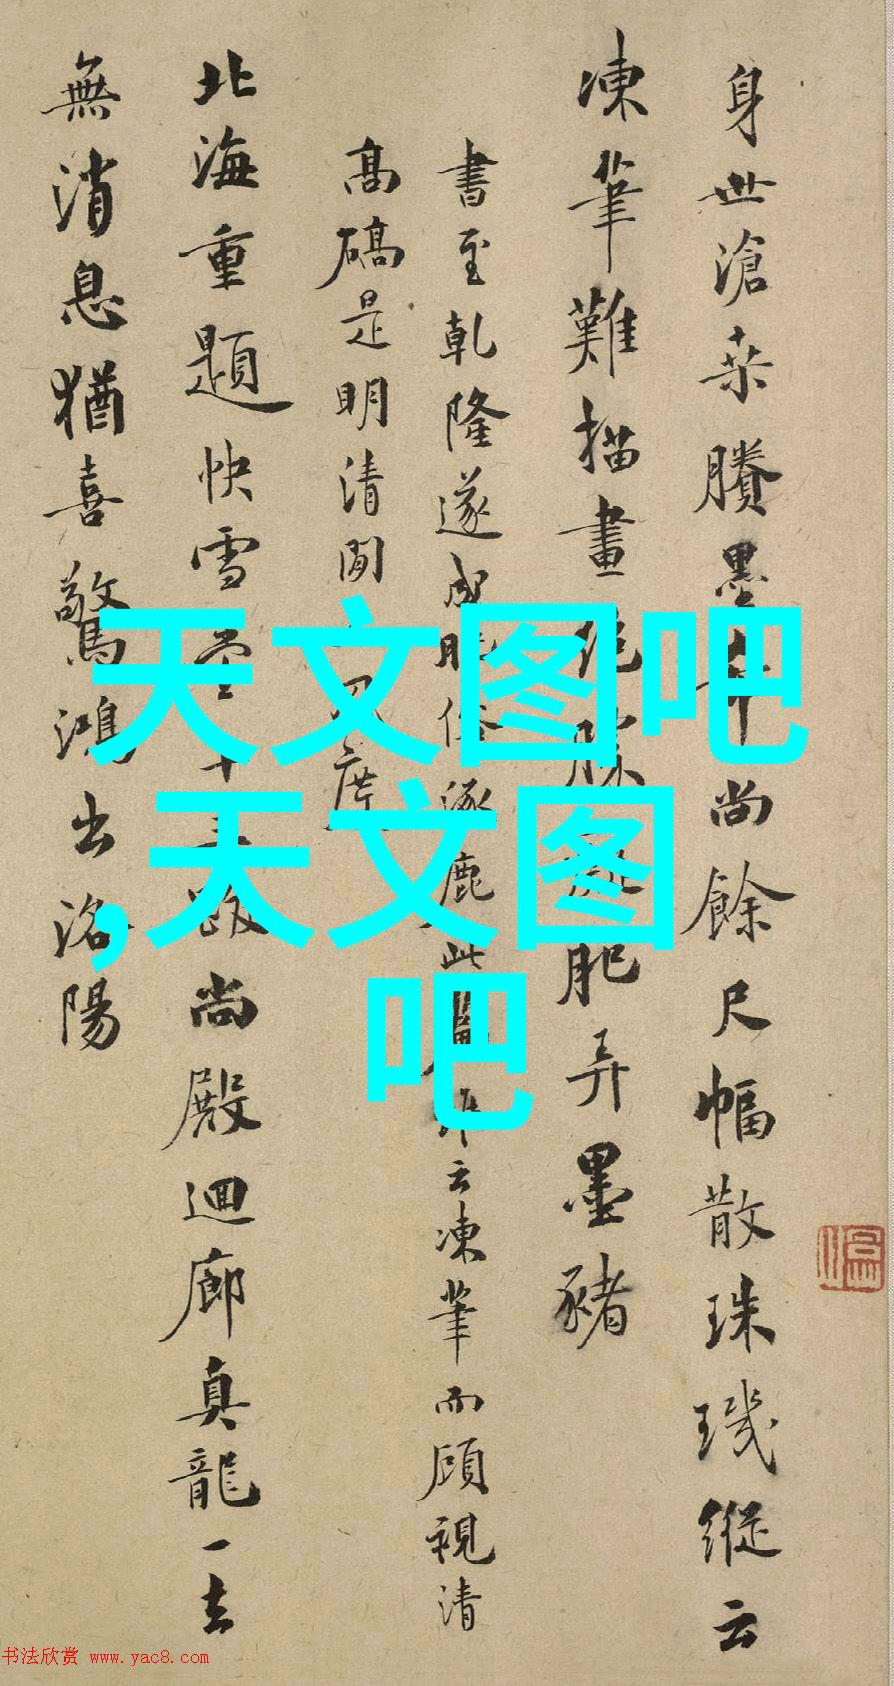 身世滄桑賸墨本尚餘尺幅散珠璣縱云
凍筆難描畫絕勝 肥弄墨豬
書至乾隆遂成 俗涿鹿此 云凍筆而顧視清
高礄是明清間
北海重題快雪堂 尚殿迴廊真龍一去
無消息猶喜驚鴻出洛陽
天文图吧
,天文图
吧
书法欣赏 www.yac8.com